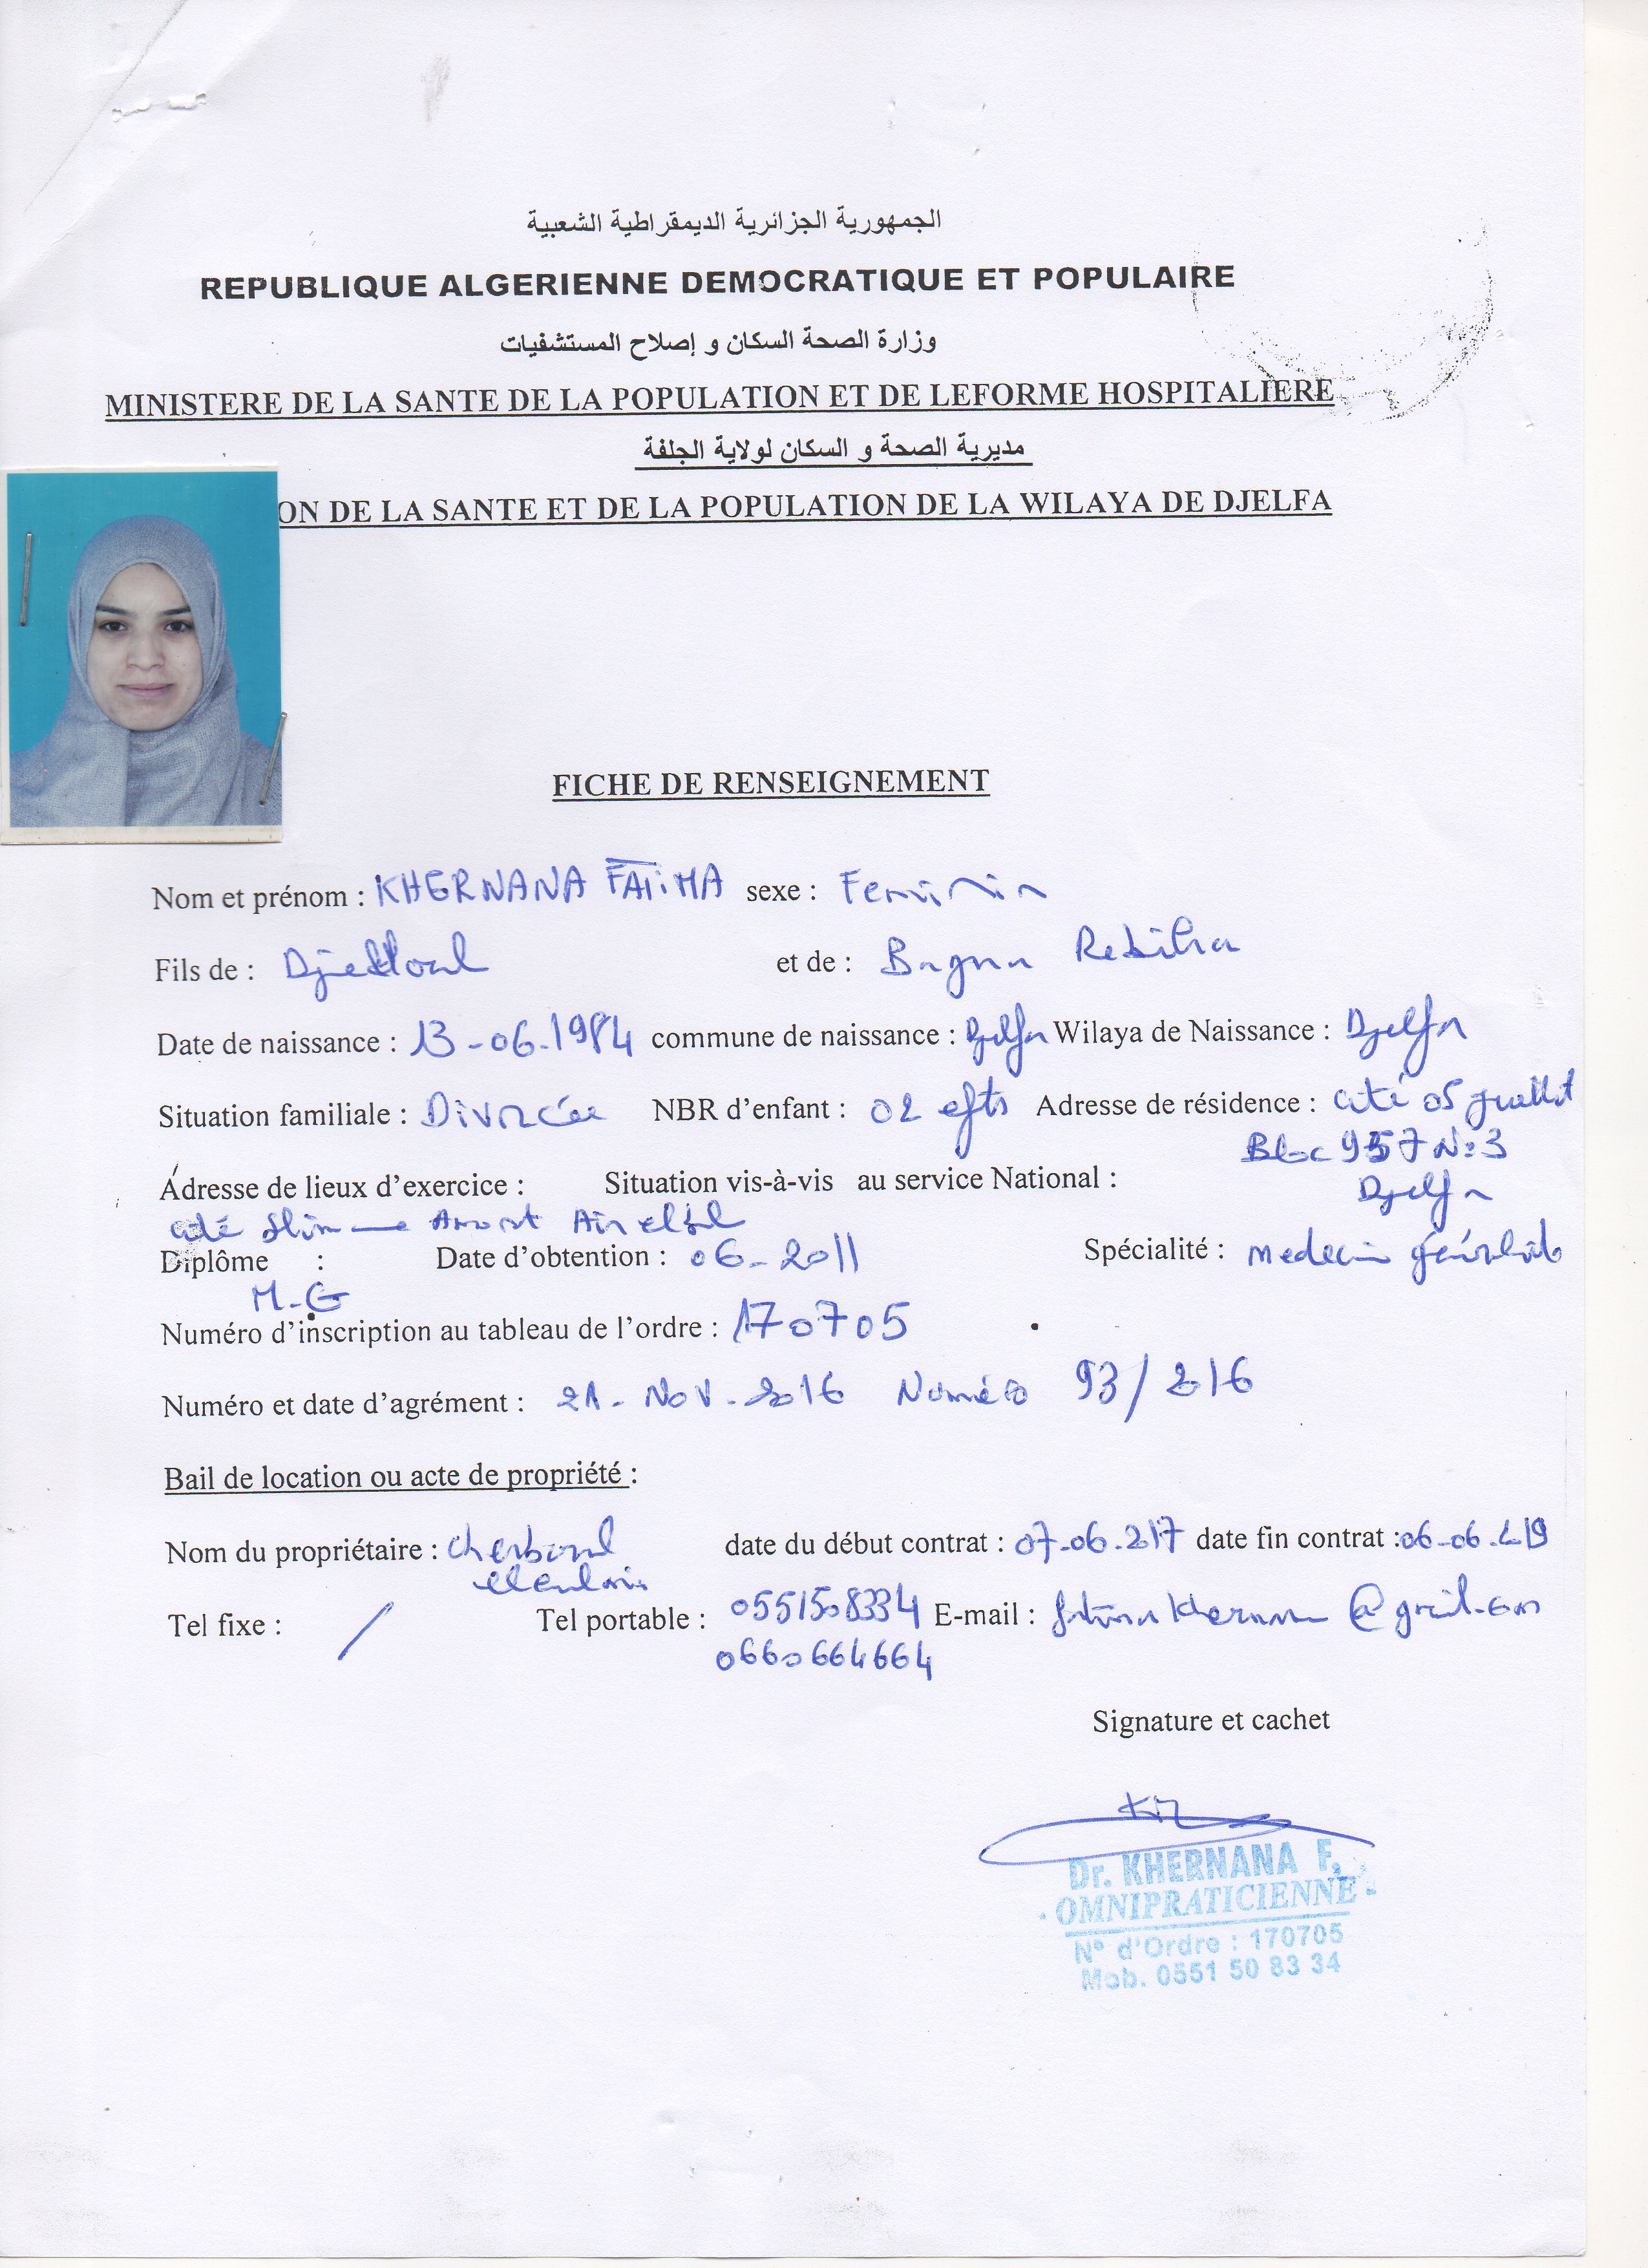 الجمهورية الجزائرية الديمقراطية الشعبية
REPUBLIQUE ALGERIENNE DEMOCRATIQUE ET POPULAIRE
وزارة الصحة السكان و إصلاح المستشفيات
MINISTERE DE LA SANTE DE LA POPULATION ET DE LEFORME HOSPITALIERE
مديرية الصحة و السكان لولاية الجلفة
ON DE LA SANTE ET DE LA POPULATION DE LA WILAYA DE DJELFA
FICHE DE RENSEIGNEMENT
Nom et prénom : KHERNANA FATIMA sexe : Feminin
Fils de : et de :
Date de naissance : 13-06-1984 commune de naissance : Djelfa Wilaya de Naissance : Djelfa
Situation familiale : Divorcée NBR d'enfant : 02 efts Adresse de résidence : cité 05 juillet
Bloc 957 N:3
Adresse de lieux d'exercice : Situation vis-à-vis au service National : Djelfa
cité
Diplôme : Date d'obtention : 06-2011 Spécialité : medecin généraliste
M-G
Numéro d'inscription au tableau de l'ordre : 170705
Numéro et date d'agrément : 21-NOV-2016 Numéro 93/216
Bail de location ou acte de propriété :
Nom du propriétaire : date du début contrat : 07-06-217 date fin contrat : 06-06-219
Tel fixe : / Tel portable : 0551508334 E-mail : fatimakhernana@gmail.com
0660664664
Signature et cachet
Dr. KHERNANA F.
- OMNIPRATICIENNE -
N° d'Ordre : 170705
Mob. 0551 50 83 34